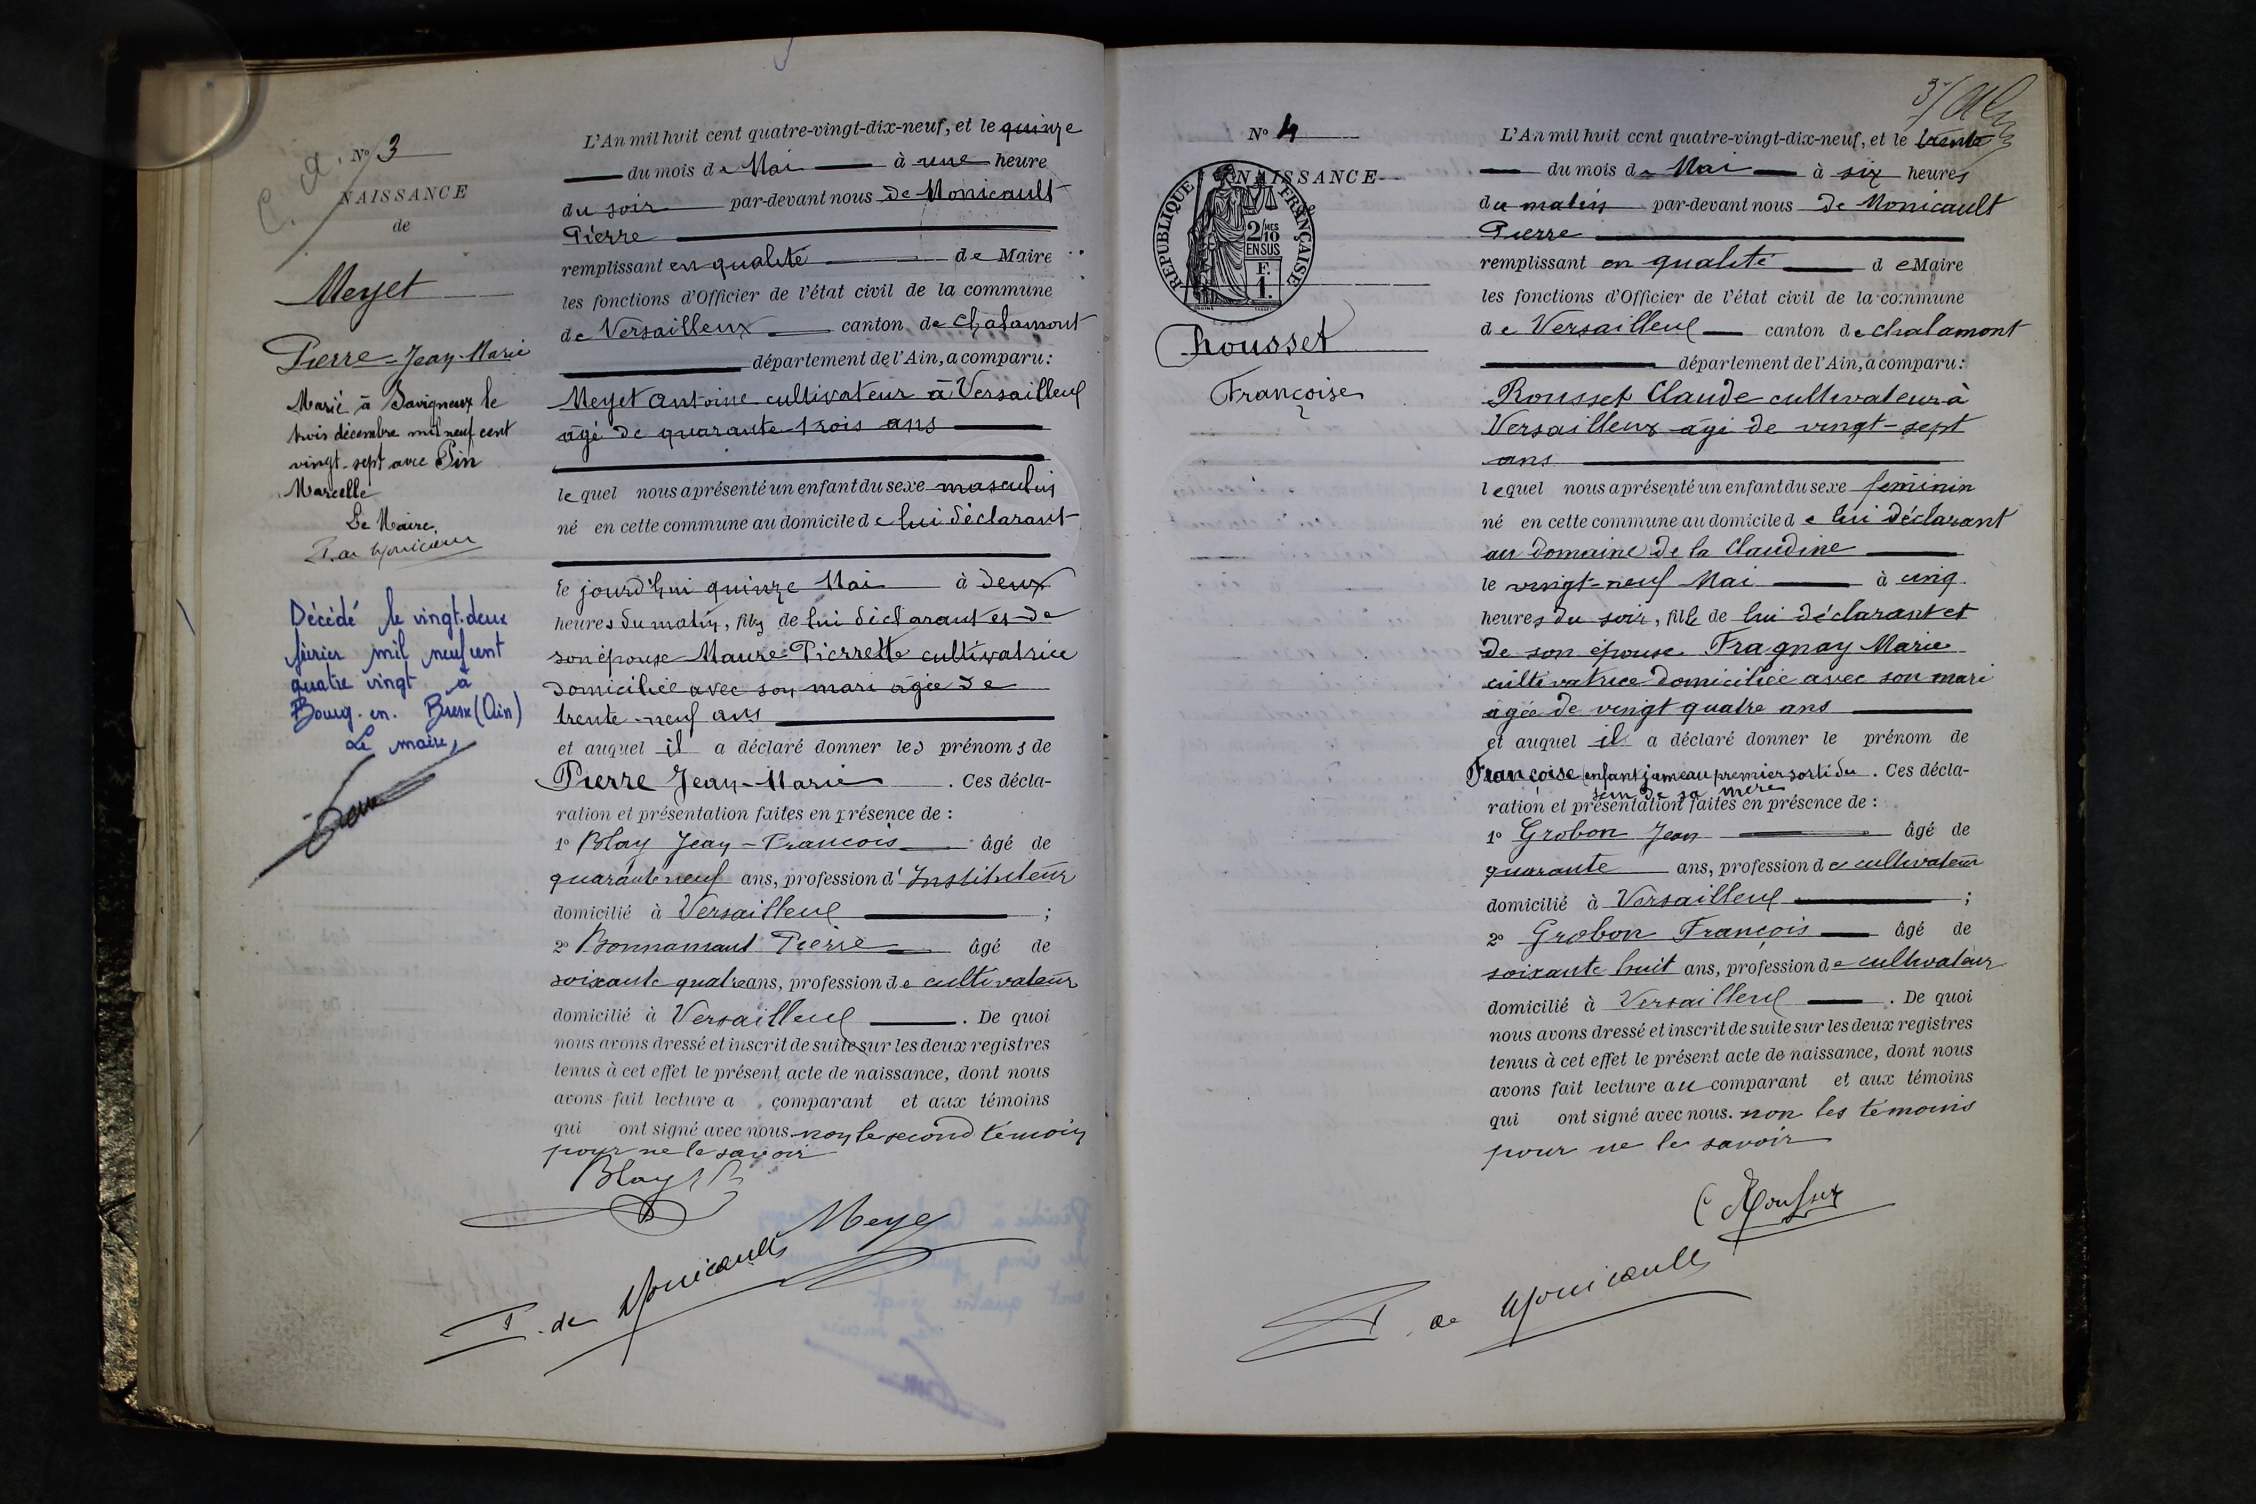 C. A.
N° 3
NAISSANCE
de
Meyet
Pierre-Jean-Marie
Marié à Savigneux le
trois décembre mil neuf cent
vingt-sept avec Pin
Marcelle
Le Maire,
P. de Monicault
Décédé le vingt-deux
février mil neuf cent
quatre vingt à
Bourg-en-Bresse (Ain)
Le maire,
L'An mil huit cent quatre-vingt-dix-neuf, et le quinze
du mois de Mai à une heure
du soir par-devant nous de Monicault
Pierre
remplissant en qualité de Maire
les fonctions d'Officier de l'état civil de la commune
de Versailleux canton de Chalamont
département de l'Ain, a comparu :
Meyet Antoine cultivateur à Versailleux
âgé de quarante-trois ans
lequel nous a présenté un enfant du sexe masculin
né en cette commune au domicile de lui déclarant
le jourd'hui quinze Mai à deux
heures du matin, fils de lui déclarant et de
son épouse Maure Pierrette cultivatrice
domiciliée avec son mari âgée de
trente-neuf ans
et auquel il a déclaré donner les prénoms de
Pierre Jean-Marie. Ces décla-
ration et présentation faites en présence de :
1° Blay Jean-François âgé de
quarante neuf ans, profession d'Instituteur
domicilié à Versailleux ;
2° Bonnamant Pierre âgé de
soixante quatre ans, profession de cultivateur
domicilié à Versailleux. De quoi
nous avons dressé et inscrit de suite sur les deux registres
tenus à cet effet le présent acte de naissance, dont nous
avons fait lecture a comparant et aux témoins
qui ont signé avec nous non le second témoin
pour ne le savoir
Blay
Meyet
P. de Monicault
N° 4
NAISSANCE
RÉPUBLIQUE FRANÇAISE
2/10 MES
EN SUS
F.
1.
Rousset
Françoise
3
L'An mil huit cent quatre-vingt-dix-neuf, et le trente
du mois de Mai à six heures
du matin par-devant nous de Monicault
Pierre
remplissant en qualité de Maire
les fonctions d'Officier de l'état civil de la commune
de Versailleux canton de chalamont
département de l'Ain, a comparu :
Rousset Claude cultivateur à
Versailleux âgé de vingt-sept
ans
lequel nous a présenté un enfant du sexe féminin
né en cette commune au domicile de lui déclarant
au domaine de la Claudine
le vingt-neuf Mai à cinq
heures du soir, fille de lui déclarant et
de son épouse Fragnay Marie
cultivatrice domiciliée avec son mari
âgée de vingt quatre ans
et auquel il a déclaré donner le prénom de
Françoise (enfant jumeau premier sorti du . Ces décla-
sein de sa mère
ration et présentation faites en présence de :
1° Grobon Jean âgé de
quarante ans, profession de cultivateur
domicilié à Versailleux ;
2° Grobon François âgé de
soixante huit ans, profession de cultivateur
domicilié à Versailleux. De quoi
nous avons dressé et inscrit de suite sur les deux registres
tenus à cet effet le présent acte de naissance, dont nous
avons fait lecture au comparant et aux témoins
qui ont signé avec nous. non les témoins
pour ne le savoir
C Rousset
P. de Monicault